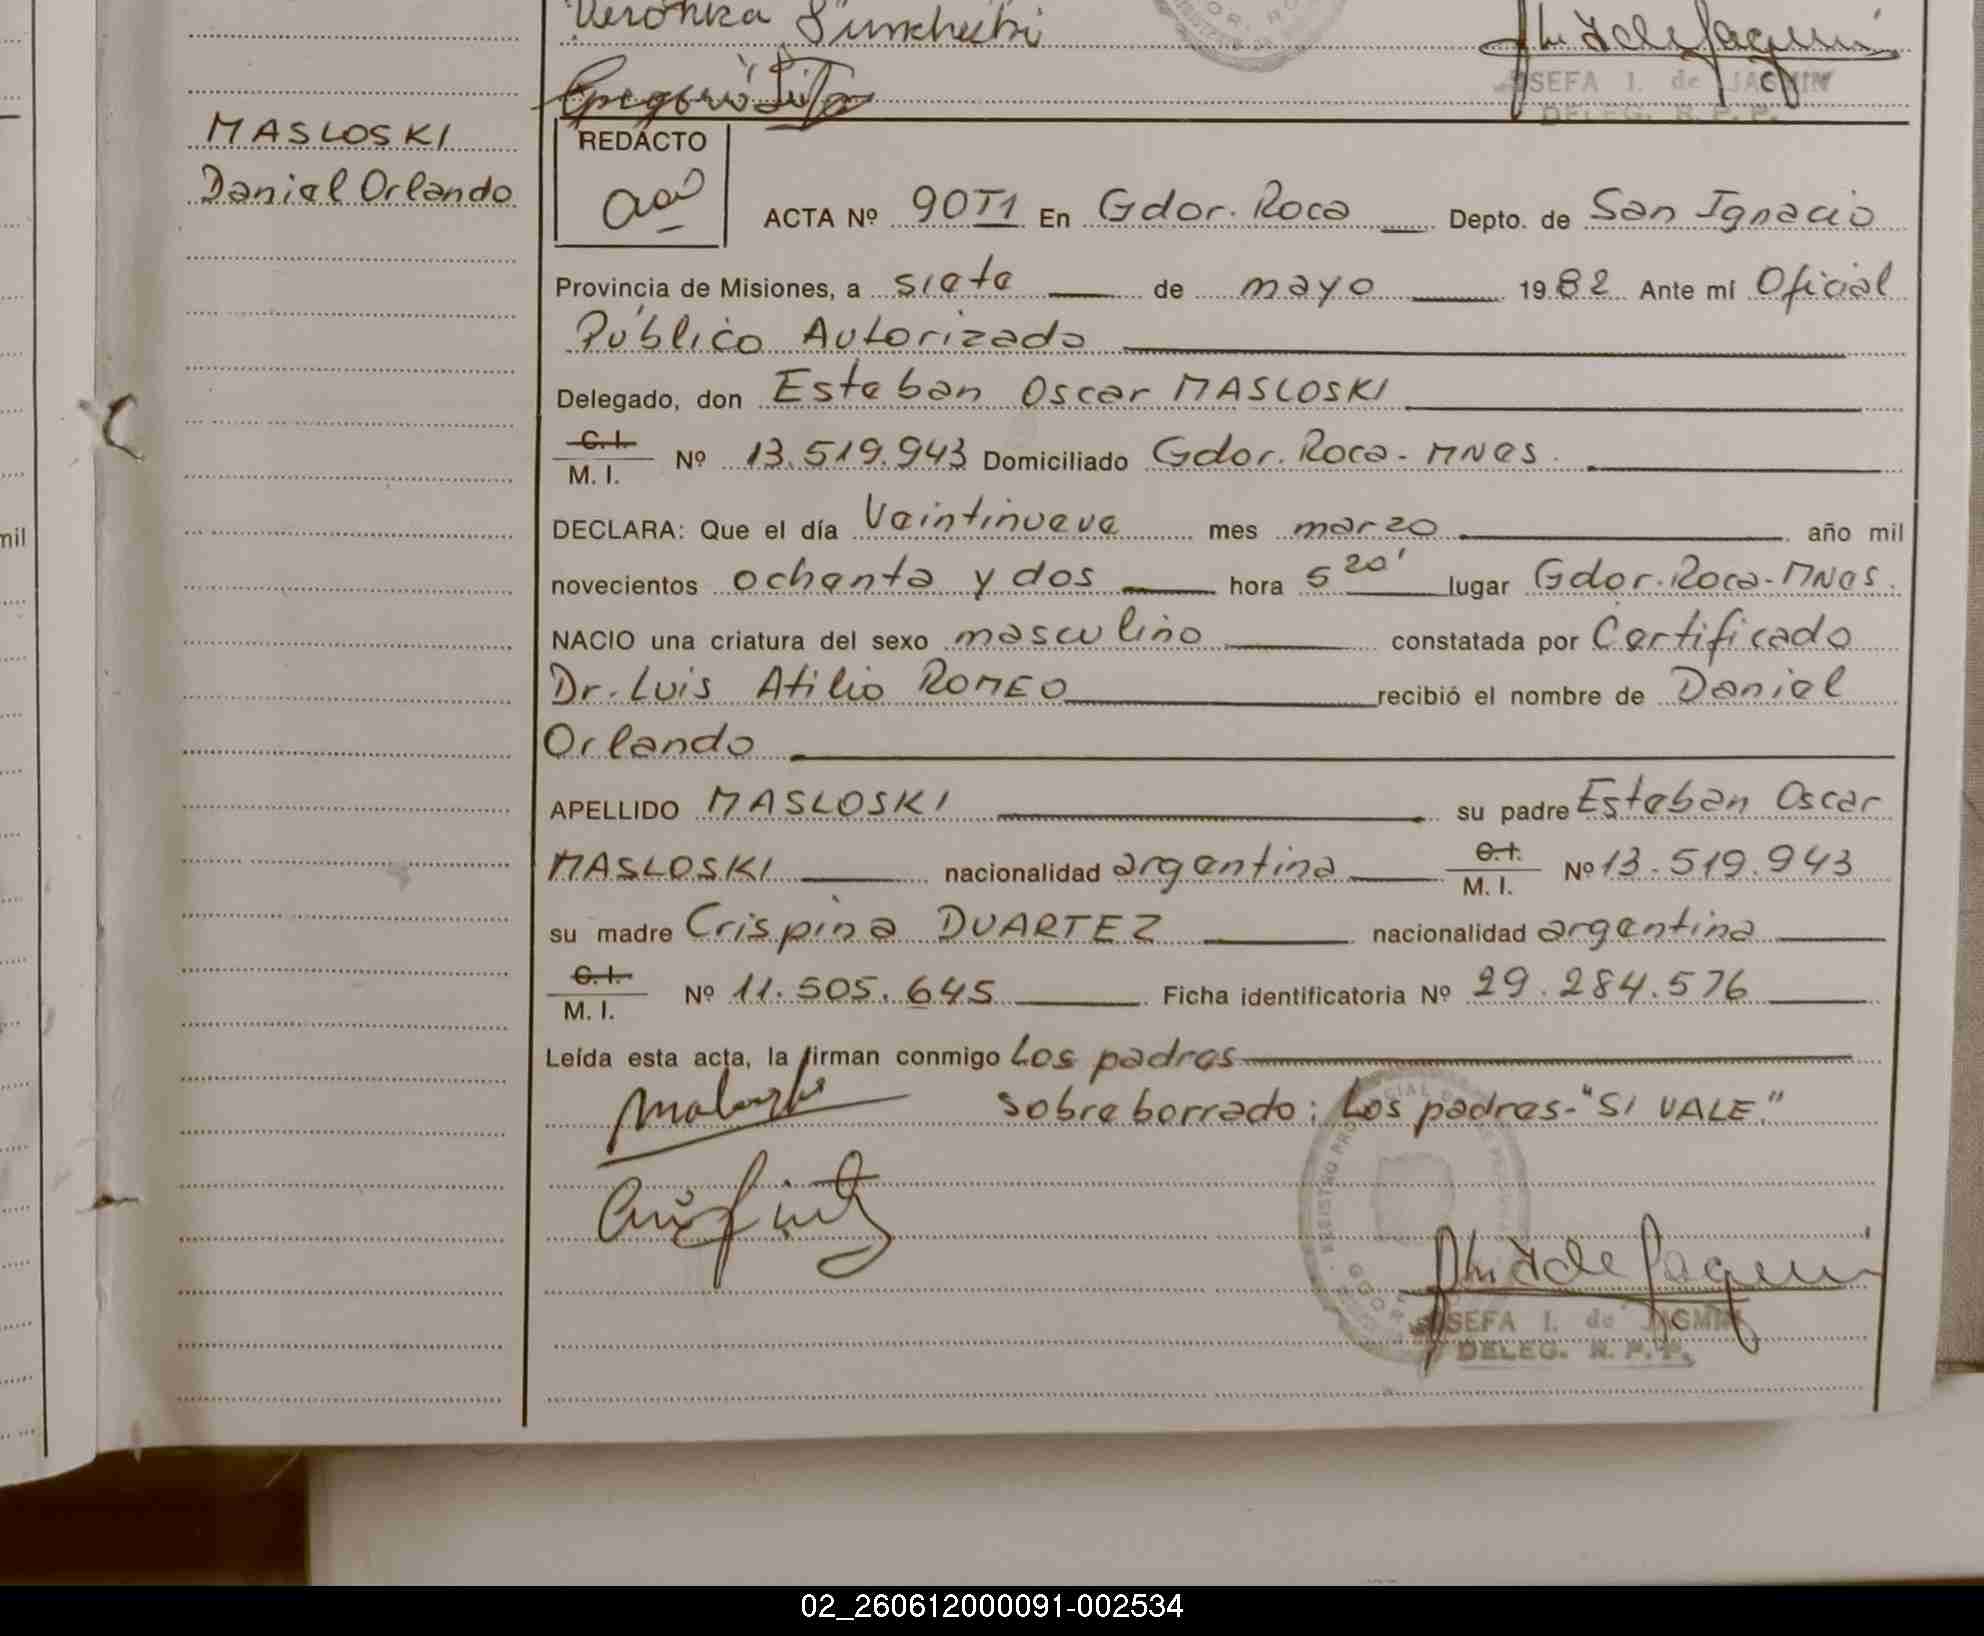 Veronika
SEFA I. de JAGMIN
DELEG. R. P. P.
MASLOSKI
Daniel Orlando
REDACTO
ACTA Nº 90T1 En Gdor. Roca Depto. de San Ignacio
Provincia de Misiones, a siete de mayo 1982 Ante mí Oficial
Público Autorizado
Delegado, don Esteban Oscar MASLOSKI
C. I.
M. I. Nº 13.519.943 Domiciliado Gdor. Roca - MNes.
DECLARA: Que el día Veintinueve mes marzo año mil
novecientos ochenta y dos hora 5 20' lugar Gdor. Roca - MNes.
NACIO una criatura del sexo masculino constatada por Certificado
Dr. Luis Atilio ROMEO recibió el nombre de Daniel
Orlando
APELLIDO MASLOSKI su padre Esteban Oscar
MASLOSKI nacionalidad argentina C. I. M. I. Nº 13.519.943
su madre Crispina DUARTEZ nacionalidad argentina
C. I.
M. I. Nº 11.505.645 Ficha identificatoria Nº 29.284.576
Leída esta acta, la firman conmigo Los padres
Sobreborrado: Los padres - "SI VALE."
SEFA I. de JAGMIN
DELEG. R. P. P.
mil
02_260612000091-002534